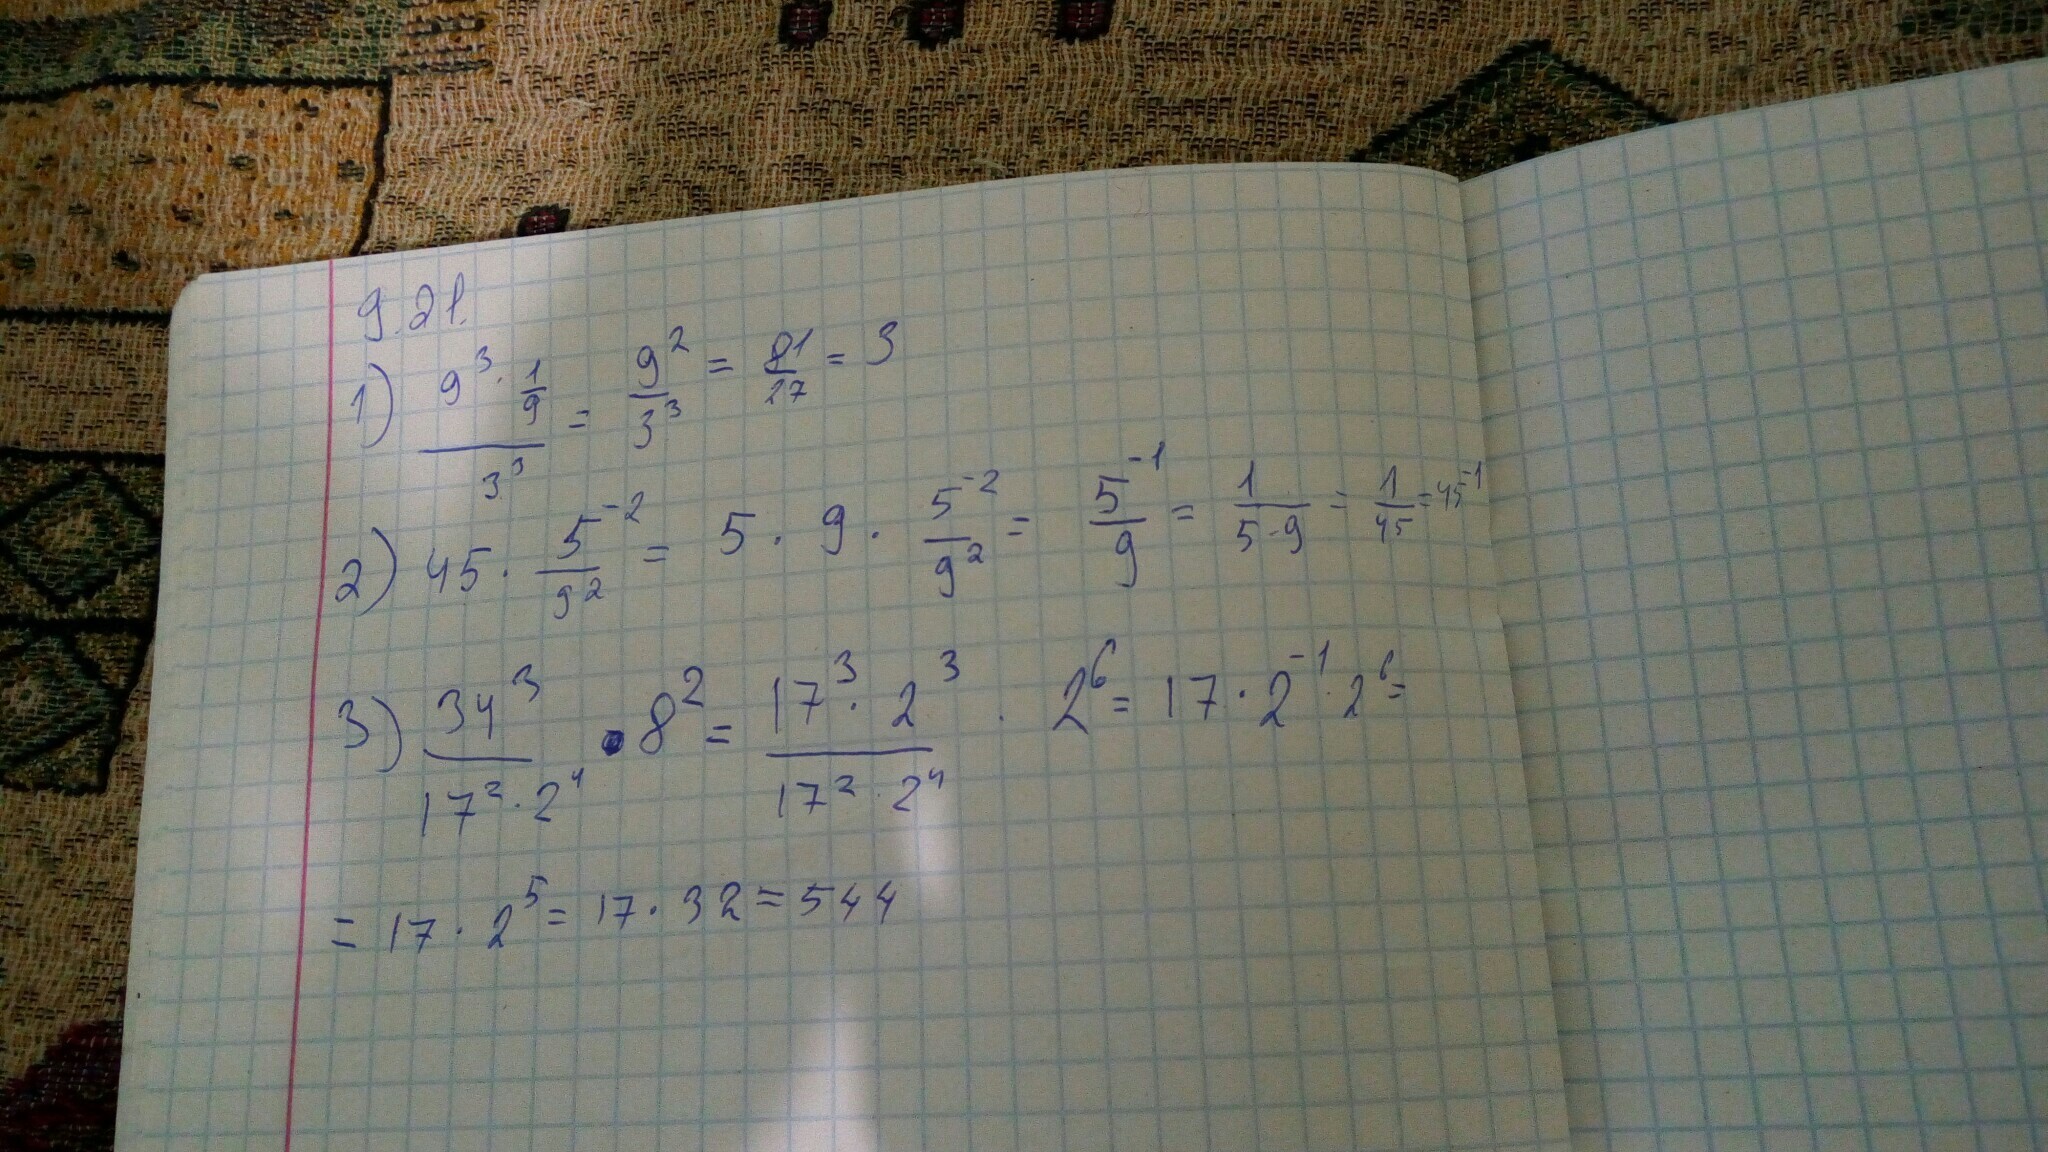 9.21.
1) \frac{9^3 \cdot \frac{1}{9}}{3^3} = \frac{9^2}{3^3} = \frac{81}{27} = 3
2) 45 \cdot \frac{5^{-2}}{9^2} = 5 \cdot 9 \cdot \frac{5^{-2}}{9^2} = \frac{5^{-1}}{9} = \frac{1}{5 \cdot 9} = \frac{1}{45} = 45^{-1}
3) \frac{34^3}{17^2 \cdot 2^4} \cdot 8^2 = \frac{17^3 \cdot 2^3}{17^2 \cdot 2^4} \cdot 2^6 = 17 \cdot 2^{-1} \cdot 2^6 =
= 17 \cdot 2^5 = 17 \cdot 32 = 544